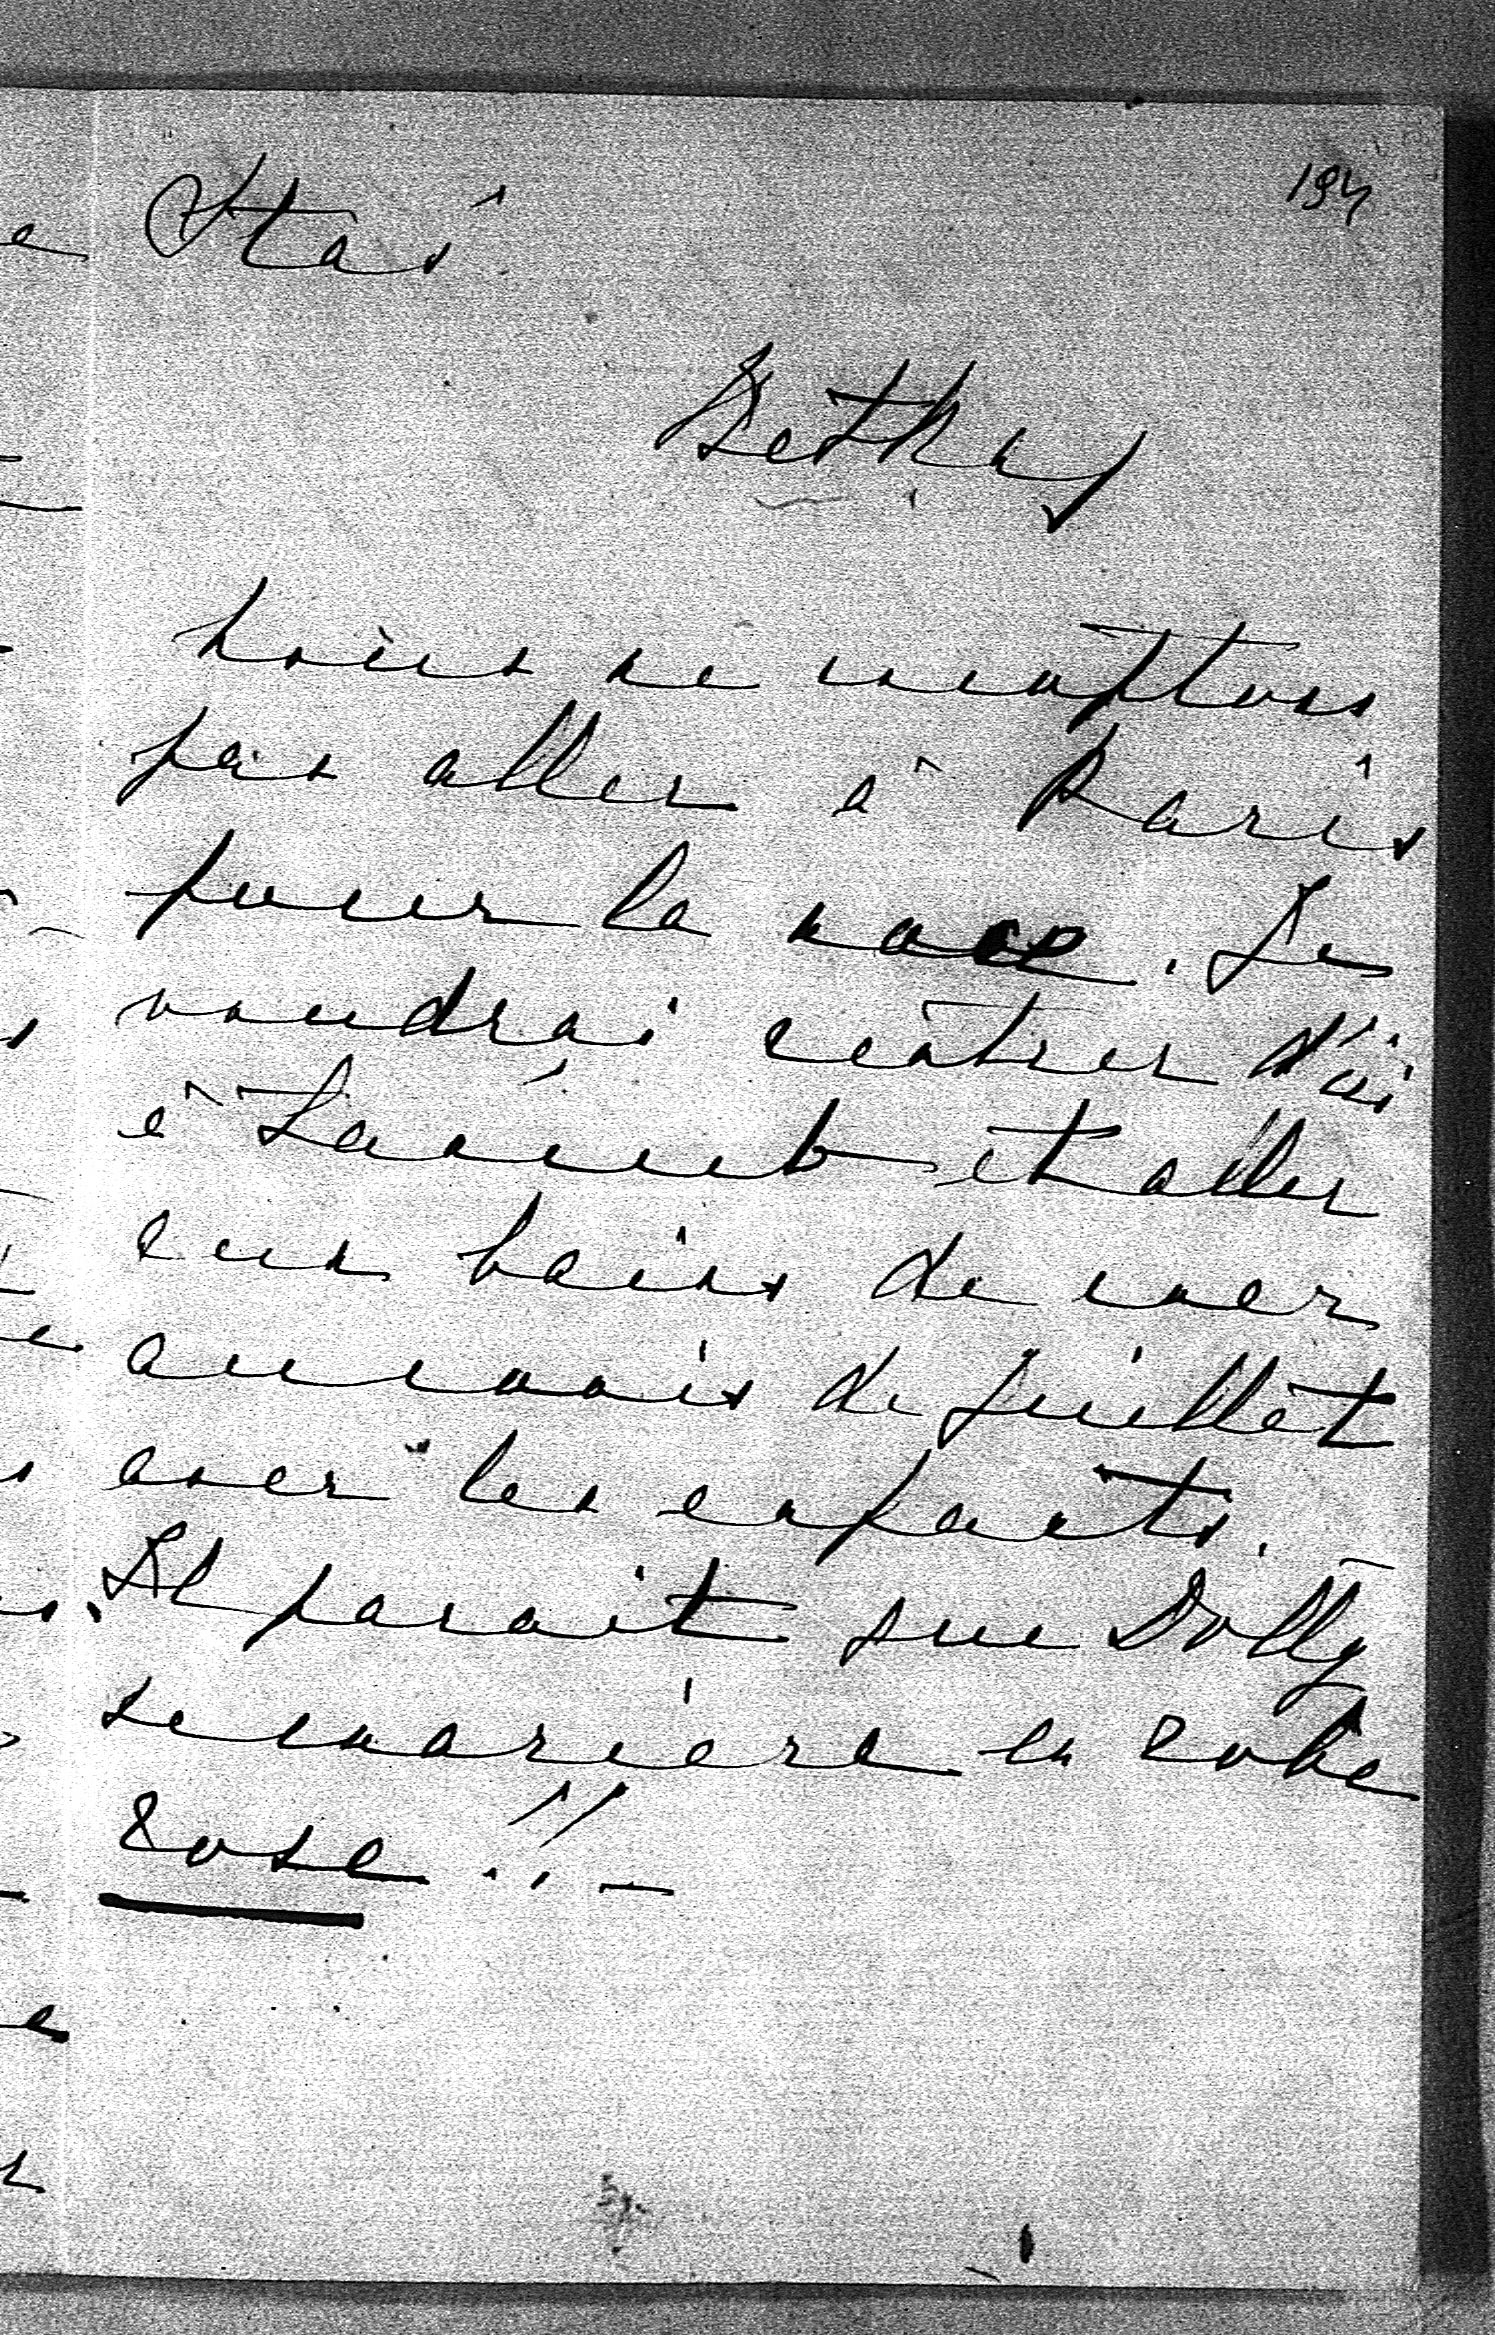 194
Stai
Bethy
Nous ne comptons
pas aller à Paris
pour la noce. Je
voudrai rentrer d'ici
à Łańcut et aller
aux bains de mer
au mois de juillet
avec les enfants. —
Il parait que Dolly
se mariera en robe
rose !! —